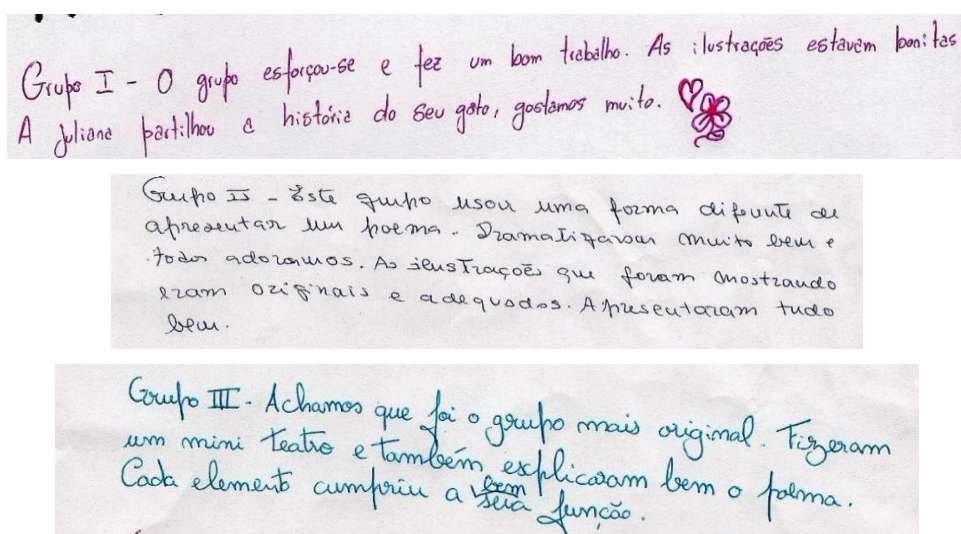 Grupo I - O grupo esforçou-se e fez um bom trabalho. As ilustrações estavam bonitas
A Juliana partilhou a história do seu gato, gostamos muito.
Grupo II - Este grupo usou uma forma diferente de
apresentar um poema. Dramatizaram muito bem e
todos adoramos. As ilustrações que foram mostrando
eram originais e adequados. Apresentaram tudo
bem.
Grupo III - Achamos que foi o grupo mais original. Fizeram
um mini teatro e também explicaram bem o poema.
Cada elemento cumpriu bem a sua função.